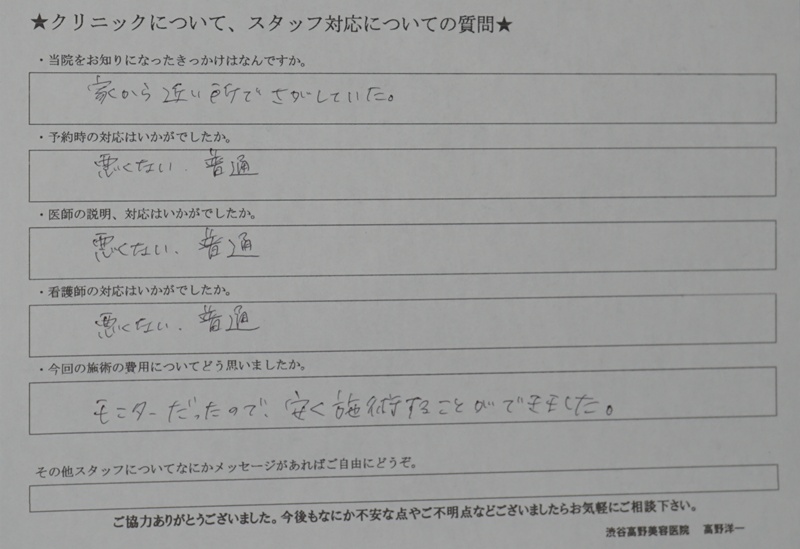 ★クリニックについて、スタッフ対応についての質問★
・当院をお知りになったきっかけはなんですか。
家から近い所でさがしていた。
・予約時の対応はいかがでしたか。
悪くない、普通
・医師の説明、対応はいかがでしたか。
悪くない、普通
・看護師の対応はいかがでしたか。
悪くない、普通
・今回の施術の費用についてどう思いましたか。
モニターだったので、安く施術することができました。
その他スタッフについてなにかメッセージがあればご自由にどうぞ。
ご協力ありがとうございました。今後もなにか不安な点やご不明点などございましたらお気軽にご相談下さい。
渋谷高野美容医院 高野洋一